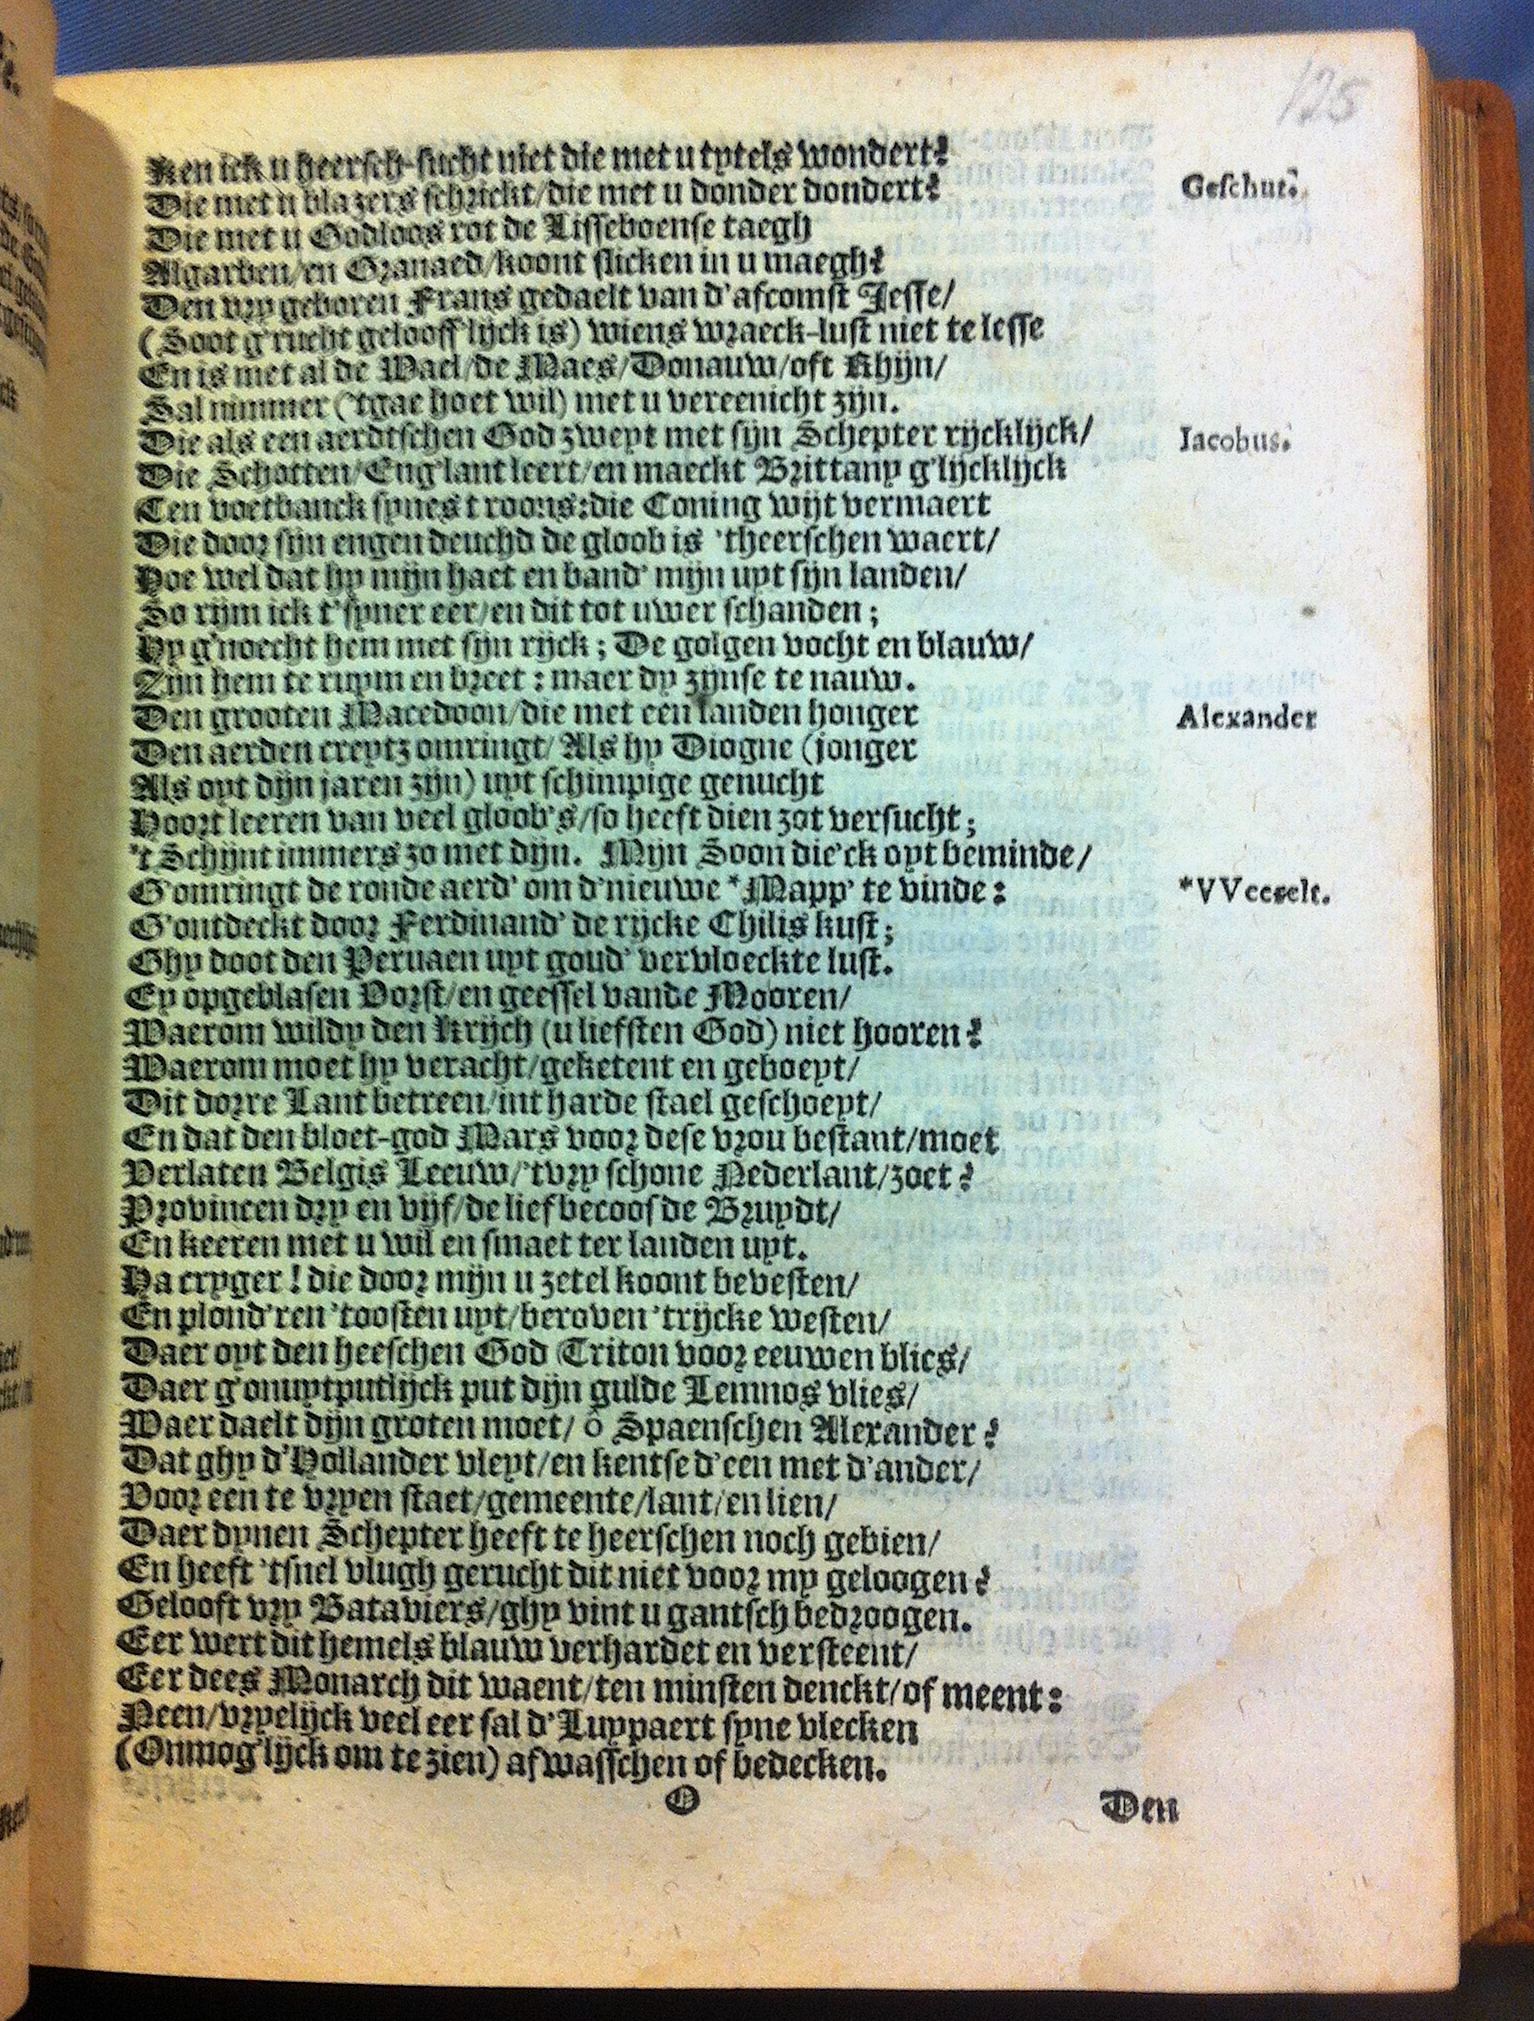 125
Ken ick u heersch-sucht niet die met u tytels wondert?
Die met u blazers schrickt/die met u donder dondert?
Geschut.
Die met u Godloos rot de Lisseboense taegh
Algarben/en Granaed/koont slicken in u maegh?
Den vry geboren Frans gedaelt van d'afcomst Jesse/
(Soot g'rucht gelooff'lijck is) wiens wraeck-lust niet te lesse
En is met al de Wael/de Maes/Donauw/oft Rhijn/
Sal nimmer ('tgae hoet wil) met u vereenicht zijn.
Die als een aerdtschen God zweyt met sijn Schepter rijcklijck/
Iacobus.
Die Schotten/Eng'lant leert/en maeckt Brittany g'lijcklijck
Een voetbanck synes troons:die Coning wijt vermaert
Die door sijn engen deuchd de gloob is 'theerschen waert/
Hoe wel dat hy mijn haet en band' mijn uyt sijn landen/
So rijm ick t'syner eer/en dit tot uwer schanden;
Hy g'noecht hem met sijn rijck; De golgen vocht en blauw/
Zijn hem te ruym en breet: maer dy zijnse te nauw.
Den grooten Macedoon/die met een landen honger
Alexander
Den aerden creytz omringt/Als hy Diogne (jonger
Als oyt dijn jaren zijn) uyt schimpige genucht
Hoort leeren van veel gloob's/so heeft dien zot versucht;
't Schijnt immers zo met dijn. Mijn Soon die'ck oyt beminde/
G'omringt de ronde aerd' om d'nieuwe *Mapp' te vinde:
*VVeerelt.
G'ontdeckt door Ferdinand' de rijcke Chilis kust;
Ghy doot den Peruaen uyt goud' vervloeckte lust.
Ey opgeblasen Vorst/en geessel vande Mooren/
Waerom wildy den Krijch (u liefsten God) niet hooren?
Waerom moet hy veracht/geketent en geboeyt/
Dit dorre Lant betreen/int harde stael geschoeyt/
En dat den bloet-god Mars voor dese vrou bestant/moet
Verlaten Belgis Leeuw/'tvry schone Nederlant/zoet?
Provincen dry en vijf/de lief becoosde Bruydt/
En keeren met u wil en smaet ter landen uyt.
Ha cryger! die door mijn u zetel koont bevesten/
En plond'ren 'toosten uyt/beroven 'trijcke westen/
Daer oyt den heeschen God Triton voor eeuwen blies/
Daer g'onuytputlijck put dijn gulde Lemnos vlies/
Waer daelt dijn groten moet/ ô Spaenschen Alexander?
Dat ghy d'Hollander vleyt/en kentse d'een met d'ander/
Voor een te vryen staet/gemeente/lant/en lien/
Daer dynen Schepter heeft te heerschen noch gebien/
En heeft 'tsnel vlugh gerucht dit niet voor my geloogen?
Gelooft vry Bataviers/ghy vint u gantsch bedroogen.
Eer wert dit hemels blauw verhardet en versteent/
Eer dees Monarch dit waent/ten minsten denckt/of meent:
Neen/vryelijck veel eer sal d'Luypaert syne vlecken
(Onmog'lijck om te zien) afwasschen of bedecken.
Den